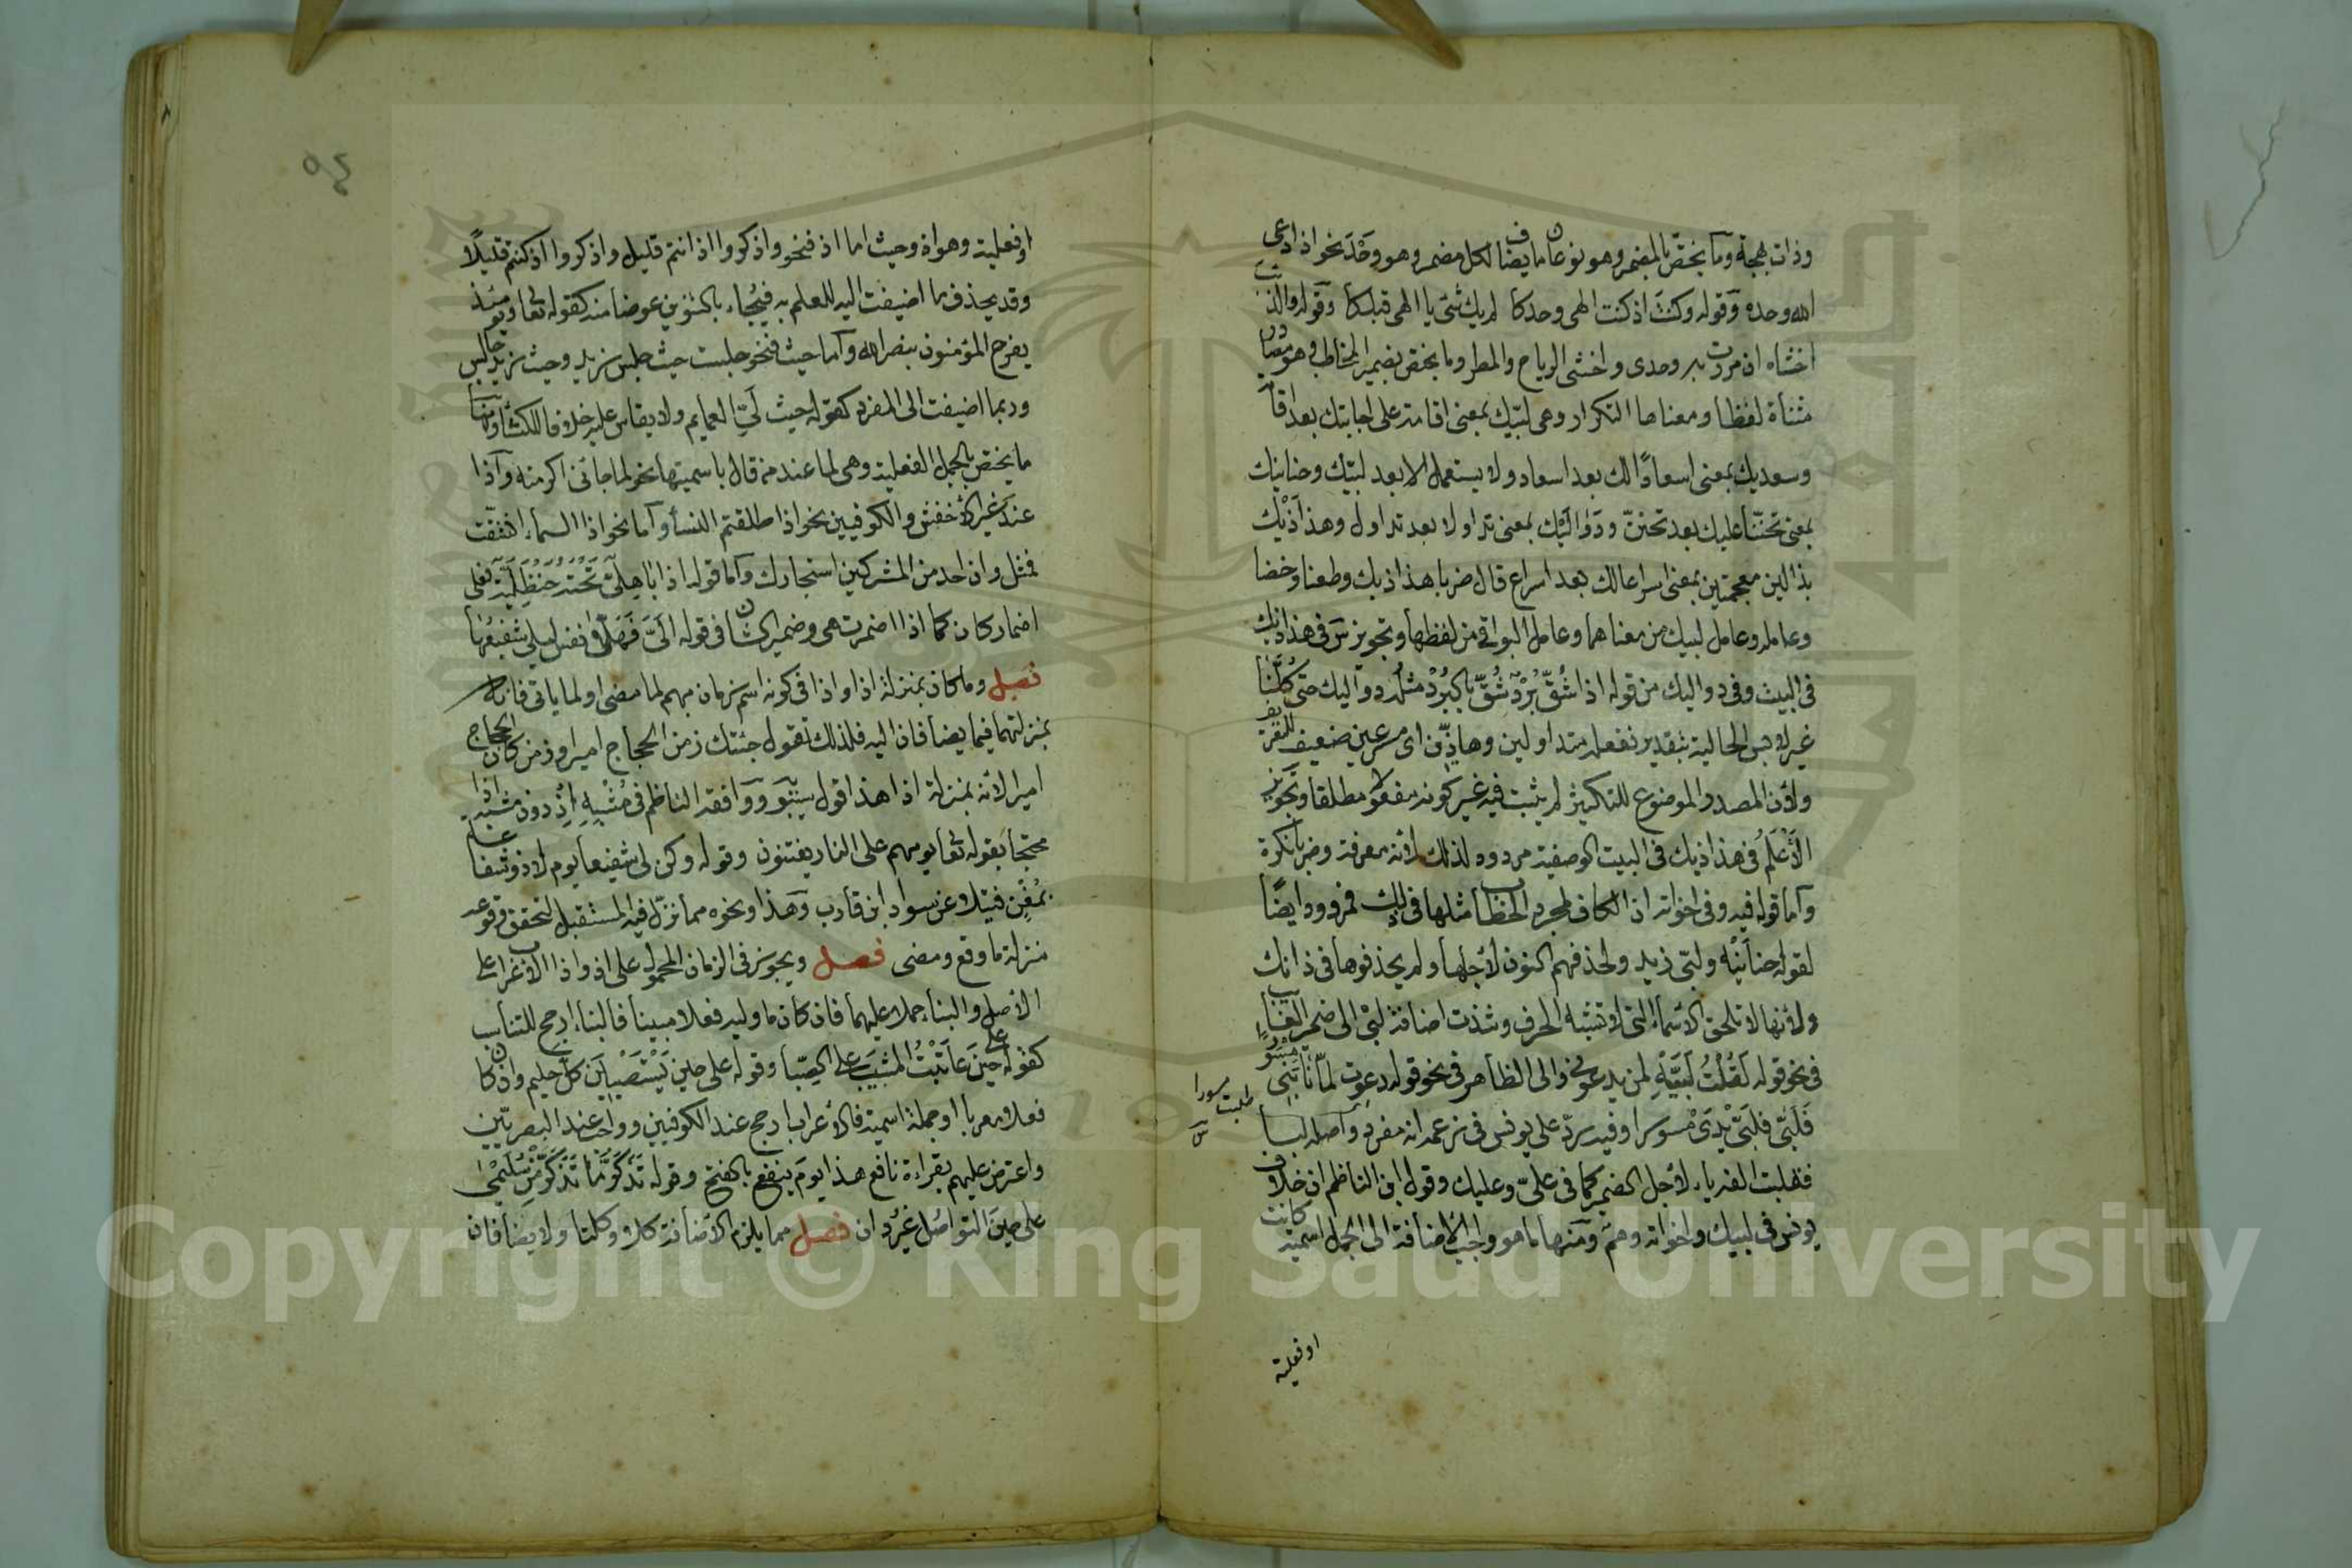 وذات بهجة وما يختص بالمضمر وهو نوعان ما يضاف لكل مضمر وهو وحد نحو اذا دعى
الله وحده وقوله وكنت اذ كنت الهى وحدكا لم يك شئ يا الهى قبلكا وقوله والذئب
اخشاه ان مررت به وحدى واخشى الرياح والمطرا وما يختص بضمير المخاطب وهو مصادر
مثناة لفظا ومعناها التكرار وهى لبيك بمعنى اقامة على اجابتك بعد اقامة
وسعديك بمعنى اسعادا لك بعد اسعاد ولا يستعمل الا بعد لبيك وحنانيك
بمعنى تحننا عليك بعد تحنن ودواليك بمعنى تداولا بعد تداول وهذاذيك
بذالين معجمتين بمعنى اسراعا لك بعد اسراع قال ضربا هذاذيك وطعنا وخضا
وعامله وعامل لبيك من معناهما وعامل البواقى من لفظها وتجويز س فى هذاذيك
فى البيت وفى دواليك من قوله اذا شق برد شق بالبرد مثله دواليك حتى كلنا
غير لابس الحالية بتقدير نفعله متداولين وهاذين اى مسرعين ضعيف للتعريف
ولان المصدر الموضوع للتكثير لم يثبت فيه غير كونه مفعولا مطلقا وتجويز
الاعلم فى هذاذيك فى البيت الوصفية مردود لذلك لانه معرفة وضربا نكرة
واما قوله فيه وفى اخواته ان الكاف لمجرد الخطاب مثلها فى ذلك فمردود ايضا
لقولهم حنانيه ولبى زيد ولحذفهم النون لاجلها ولم يحذفوها فى ذانك
ولانها لا تلحق الاسماء التى لا تشبه الحرف وشذت اضافة لبى الى ضمير الغائب
فى نحو قوله لقلت لبيه لمن يدعونى والى الظاهر فى نحو قوله دعوت لما نابنى مسورا
فلبى فلبى يدى مسورا وفيه رد على يونس فى زعمه انه مفرد واصله لبا
فقلبت الفه ياء لاجل الضمير كما فى على وعليك وقول ابن الناظم ان خلاف
يونس فى لبيك واخواته وهم ومنها ما هو واجب الاضافة الى الجمل اسمية كانت
طلبت مسورا
او فعلية
او فعلية وهو اذ وحيث اما اذ فنحو واذكروا اذ انتم قليل واذكروا اذ كنتم قليلا
وقد يحذف ما اضيفت اليه للعلم به فيجاء بالتنوين عوضا منه كقوله تعا ويومئذ
يفرح المؤمنون بنصر الله واما حيث فنحو جلست حيث جلس زيد وحيث زيد جالس
وربما اضيفت الى المفرد كقوله حيث لى العمايم ولا يقاس عليه خلافا للكسائى ومنها
ما يختص بالجمل الفعلية وهى لما عند من قال باسميتها نحو لما جائنى اكرمته واذا
عند غير الاخفش والكوفيين نحو اذا طلقتم النسا واما نحو اذا السماء انشقت
فمثل وان احد من المشركين استجارك واما قوله اذا باهلى تحته حنظلية فعلى
اضمار كان كما اضمرت هى وضمير الشان فى قوله الى فهلا نفس ليلى شفيعها
فصل وما كان بمنزلة اذ او اذا فى كونه اسم زمان مبهم لما مضى او لما ياتى فانه
بمنزلتهما فيما يضافان اليه فلذلك تقول جئتك زمن الحجاج امير او زمن كان الحجاج
اميرا لانه بمنزلة اذ هذا قول سيبويه ووافقه الناظم فى مشبه اذ دون مشبه اذا
محتجا بقوله تعا يوم هم على النار يفتنون وقوله وكن لى شفيعا يوم لا ذو شفاعة
بمغن فتيلا عن سواد ابن قارب وهذا ونحوه مما نزل فيه المستقبل لتحقق وقوعه
منزلة ما وقع ومضى فصل ويجوز فى الزمان المحمول على اذ واذا الاعراب على
الاصل والبناء حملا عليهما فان كان ما وليه فعلا مبنيا فالبناء ارجح للتناسب
كقوله على حين عاتبت المشيب على الصبا وقوله على حين يستصبين كل حليم وان كان
فعلا معربا او جملة اسمية فالاعراب ارجح عند الكوفيين وواجب عند البصريين
واعترض عليهم بقراءة نافع هذا يوم ينفع بالفتح وقوله تذكر ما تذكر من سليمى
على حين التواصل غير دان فصل مما يلزم الاضافة كلا وكلتا ولا يضافان